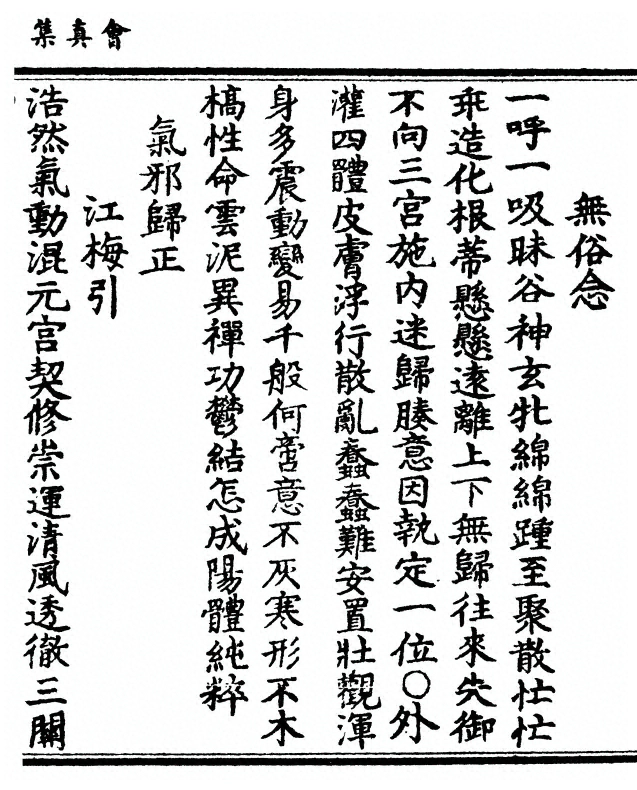 會真集
無俗念
一呼一吸昧谷神玄牝綿綿踵至聚散忙忙
乖造化根蒂懸懸遠離上下無歸往來失御
不向三宮施內迷歸腠意因執定一位○外
灌四體皮膚浮行散亂蠢蠢難安置壯觀渾
身多震動變易千般何啻意不灰寒形不木
槁性命雲泥異禪功鬱結怎成陽體純粹
氣邪歸正
江梅引
浩然氣動混元宮契修崇運清風透徹三關